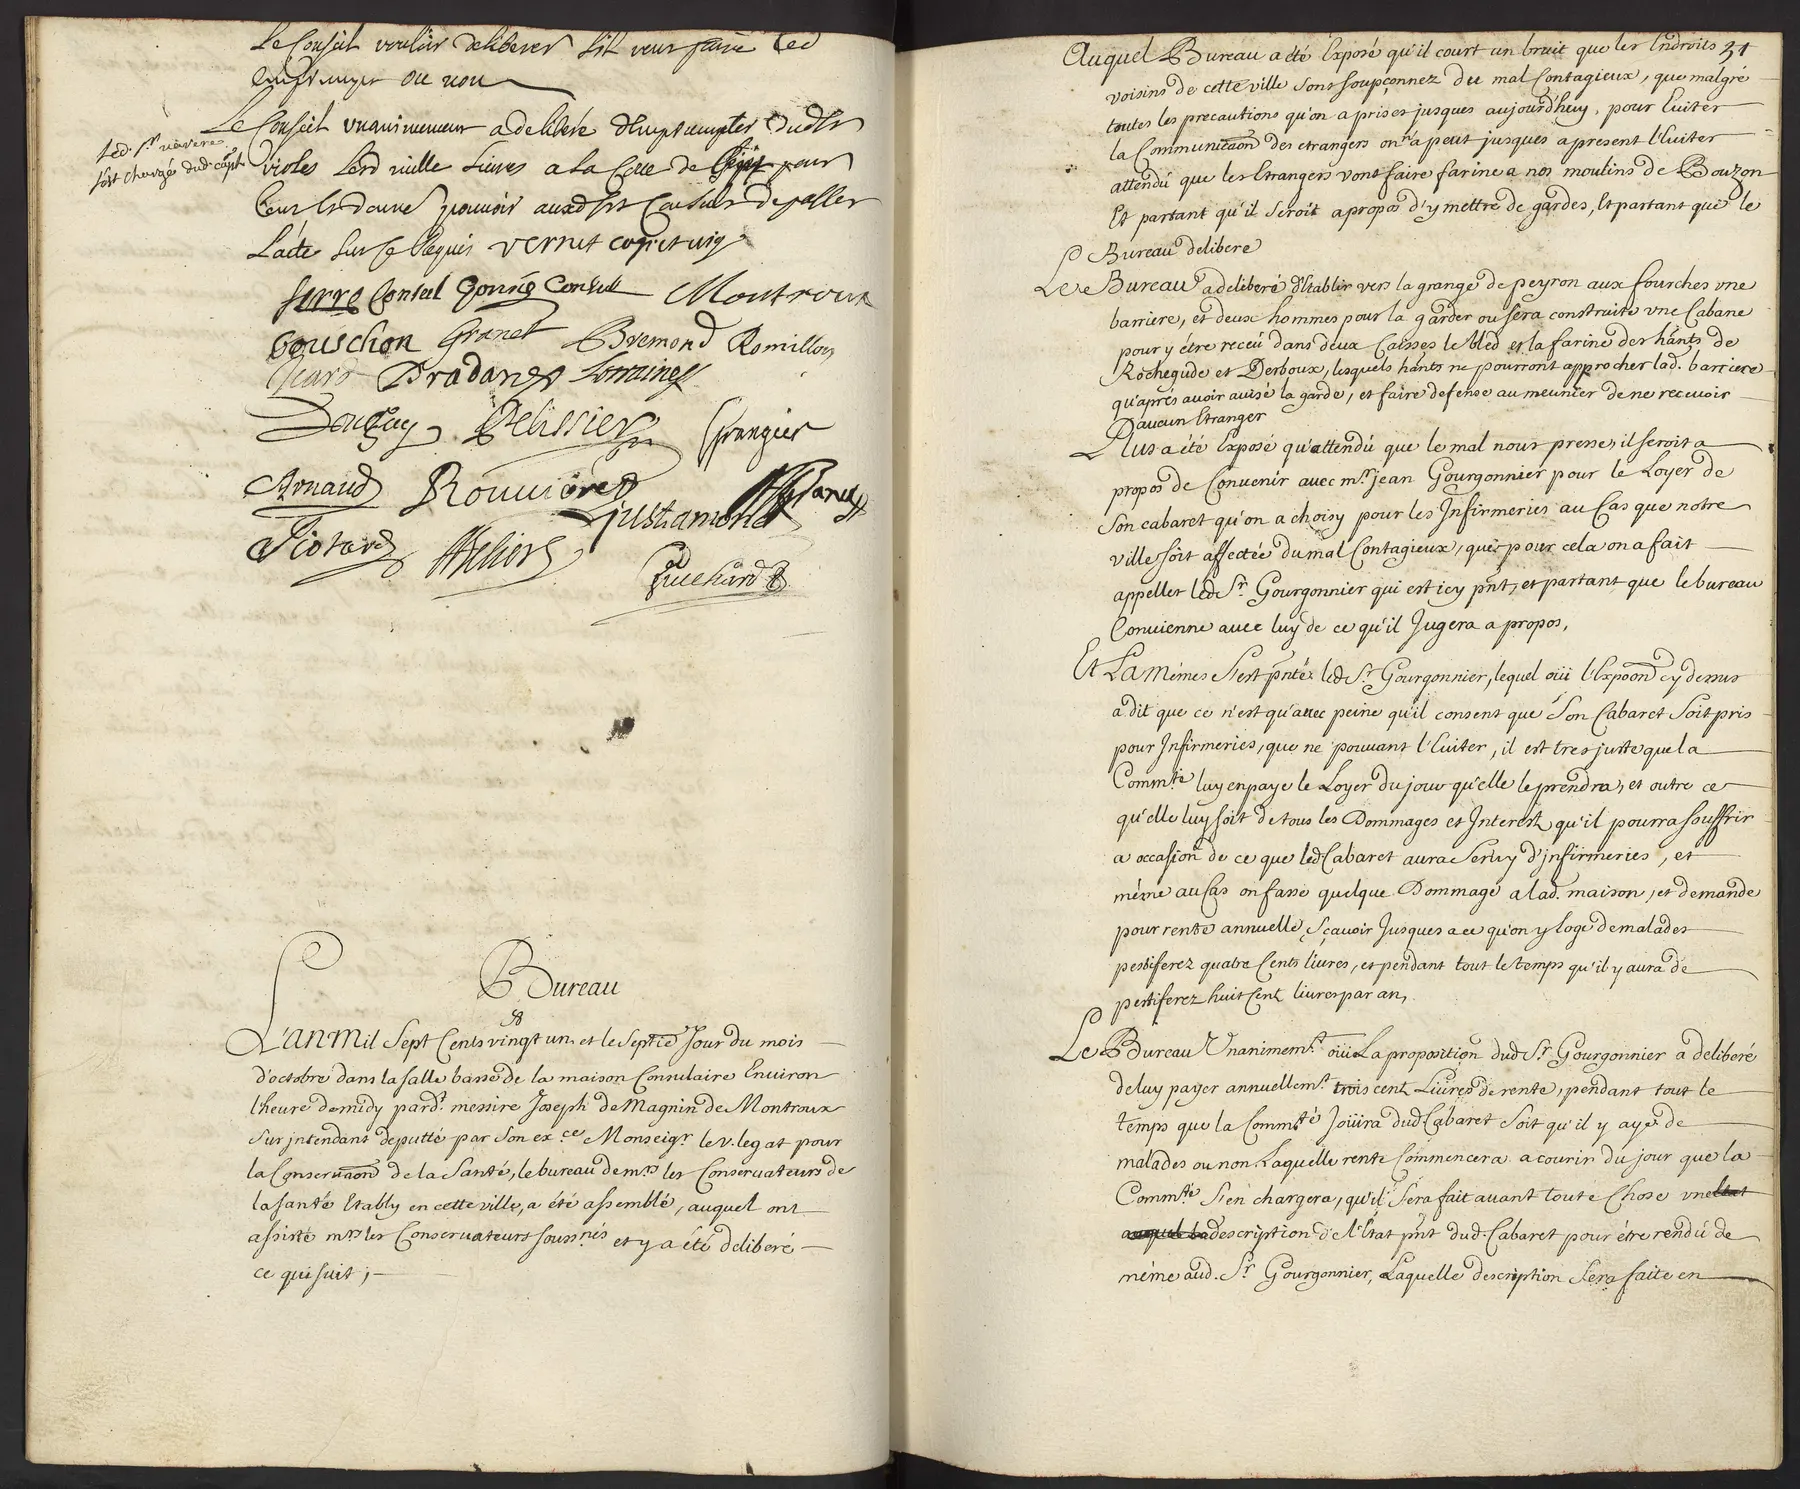 Le Conseil vouloir deliberer sil veut faire led
emprumpt ou non
Le Conseil unanimement a deliberé d'emprumpter dud Sr
Led. Sr viovere
s'est chargé dud. capl
violes lesd mille livres a la Cotte de pour
cent Et donné pouvoir auxd Srs Consuls de passer
L'acte sur ce Requis
serre Consul Consul Montroux
Granet Bremond Romillon
Icard Bradanes Lorraines
Pelissier Grangier
Arnaud Rouviere
Justamond
Tiotard Guichard
Bureau
L'an Mil Sept Cents vingt un et le Septie Jour du mois
d'octobre dans la salle basse de la maison Consulaire Environ
l'heure de midy pard.t messire Joseph de Magnin de Montroux
Sur jntendant deputté par Son ex.ce Monseigr le v. legat pour
la Conservaon de la Santé, le bureau de mrs les Conservateurs de
la santé Etably en cette ville, a été assemblé, auquel ont
assisté mrs les Conservateurs soussnés et y a été deliberé
ce qui suit ;
Auquel Bureau a été Exposé qu'il court un bruit que les Endroits 31
voisins de cette ville sont soupçonnez du mal Contagieux, que malgré
toutes les precautions qu'on a prises jusques aujourdhuy, pour Euiter
la Communicaon des etrangers on n'a peut jusques a present l'Euiter
attendu que les Etrangers vont faire farine a nos moulins de Bouzon
Et partant qu'il seroit apropos d'y mettre de gardes, Et partant que le
Bureau delibere
Le Bureau a deliberé d'Etablir vers la grange de peyron aux fourches vne
barriere, et deux hommes pour la garder ou sera construite vne Cabane
pour y étre receü dans deux Caisses le bled et la farine des hants de
Rochegude et Derboux, lesquels hants ne pourront approcher lad. barriere
qu'aprés auoir auisé la garde, et faire defense au meunier de ne receuoir
aucun Etranger
Plus a été Exposé qu'attendu que le mal nous presse, il seroit a
propos de Conuenir auec mr. jean Gourgonnier pour le Loyer de
Son cabaret qu'on a choisy pour les Infirmeries au Cas que notre
ville soit affectée du mal Contagieux, que pour cela on a fait
appeller led Sr. Gourgonnier qui est icy pnt, et partant que le bureau
Conuienne auec luy de ce qu'il Jugera a propos,
Et La Mémes S'est pnté led Sr. Gourgonnier, lequel oüi l'Expoon cy dessus
a dit que ce n'est qu'auec peine qu'il consent que Son Cabaret Soit pris
pour Infirmeries, que ne pouuant l'Euiter, il est tres juste que la
Commté luy en paye le Loyer du jour qu'elle le prendra, et outre ce
qu'elle luy soit de tous les Dommages et Interests qu'il pourra souffrir
a occasion de ce que led Cabaret aura Seruy d'jnfirmeries, et
méme au Cas on fasse quelque Dommage a lad. maison, et demande
pour rente annuelle, Sçauoir Jusques a ce qu'on y loge de malades
pestiferez quatre Cents liures, et pendant tout le temps qu'il y aura de
pestiferez huit Cent liures par an,
Le Bureau Unanimemt. oüi La proposition dud Sr. Gourgonnier a deliberé
de luy payer annuellemt. trois cent Liures de rente, pendant tout le
temps que la Commté Joüira dud Cabaret Soit qu'il y aye de
malades ou non Laquelle rente Commencera a courir du jour que la
Commté S'en chargera, qu'il Sera fait auant toute Chose vne
description de l'Etat pnt dud. Cabaret pour étre rendu de
méme aud. Sr. Gourgonnier, Laquelle description Sera faite en